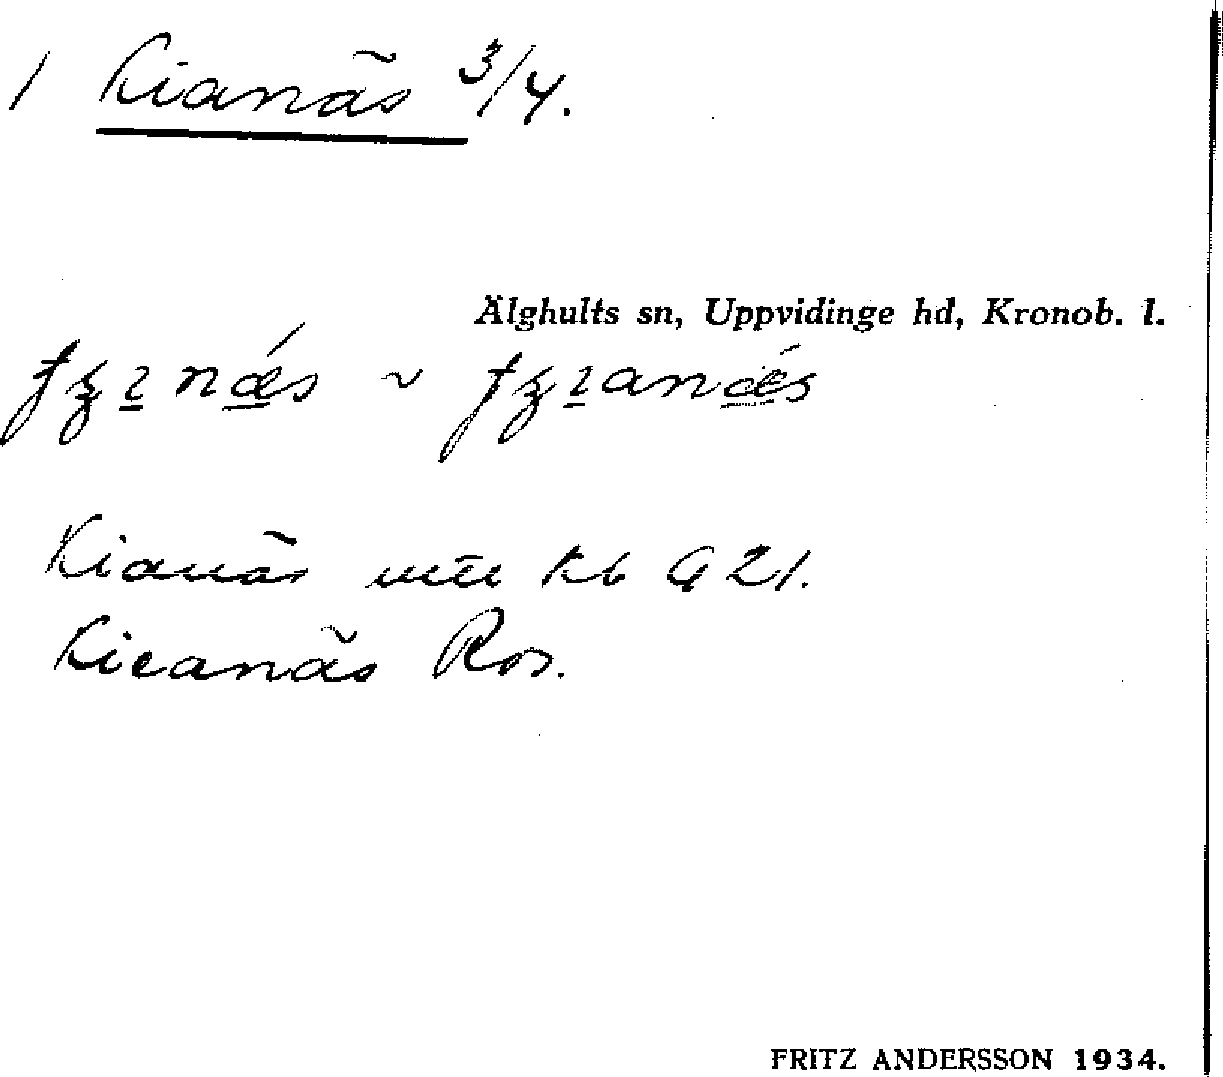 1 Kianäs 3/4.
Älghults sn, Uppvidinge hd, Kronob. l.
Kianäs Kb G 21.
Kieanäs Ros.
FRITZ ANDERSSON 1934.